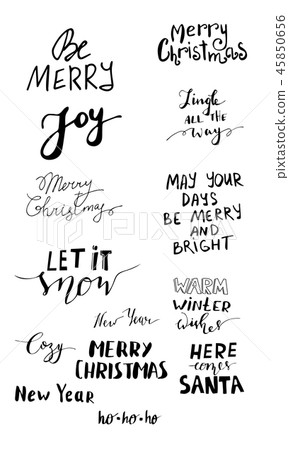 Be
MERRY
Merry
Christmas
Joy
Jingle
ALL THE
way
Merry
Christmas
MAY YOUR
DAYS
BE MERRY
AND
BRIGHT
LET iT
snow
WARM
WiNTER
wishes
New Year
Cozy
MERRY
CHRISTMAS
HERE
comes
SANTA
New Year
ho•ho•ho
PIXTA
pixta.jp - 45850656